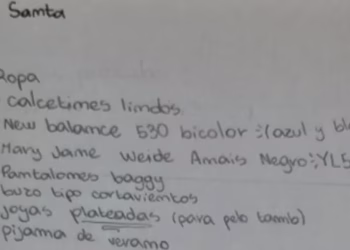 Samta
Ropa
calcetimes limdos
New balamce 530 bicolor :(azul y bl
Mary Jame Weide Amais Negro:YLS
Pamtalomes baggy
buzo tipo cortaviemtos
joyas plateadas (para pelo tambo)
pijama de veramo